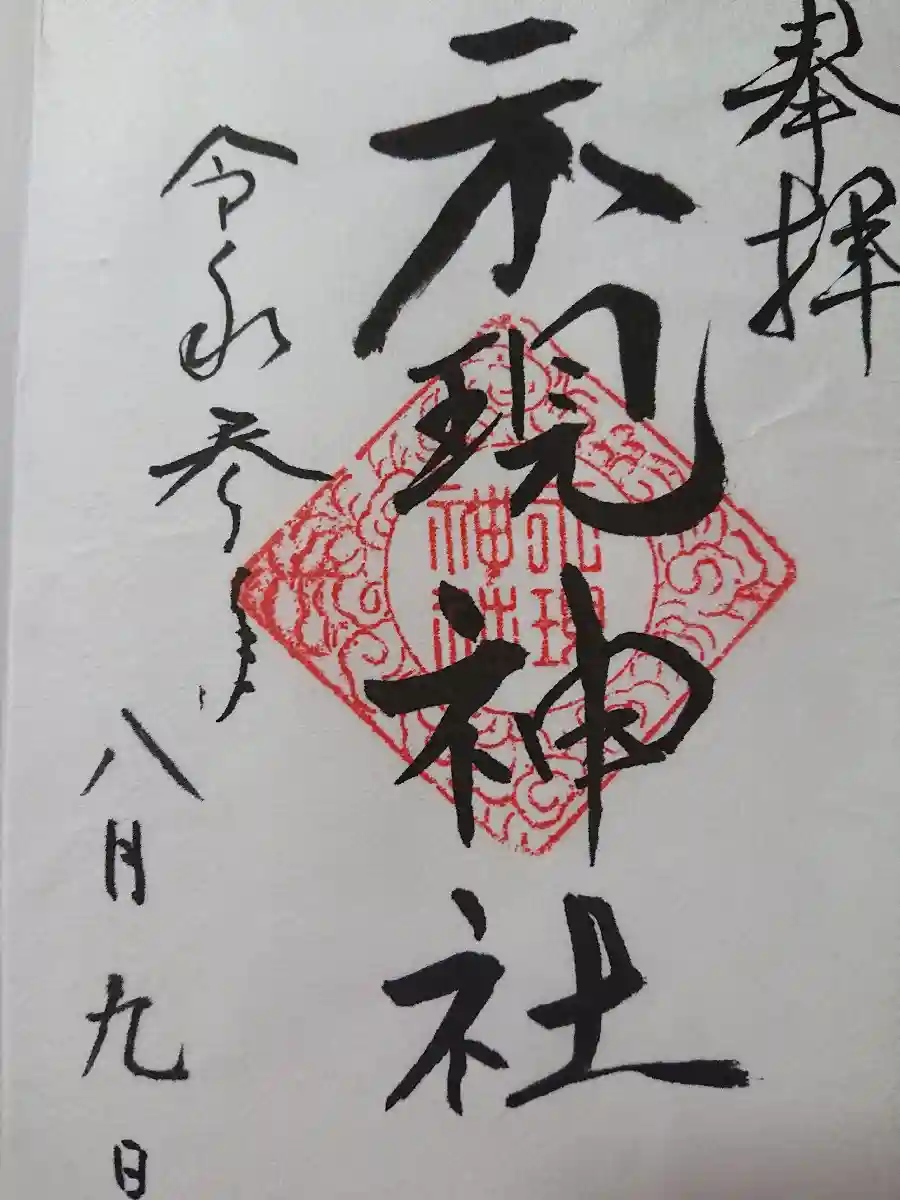 奉拝
示現神社
示現
神社
令和参年
八月九日